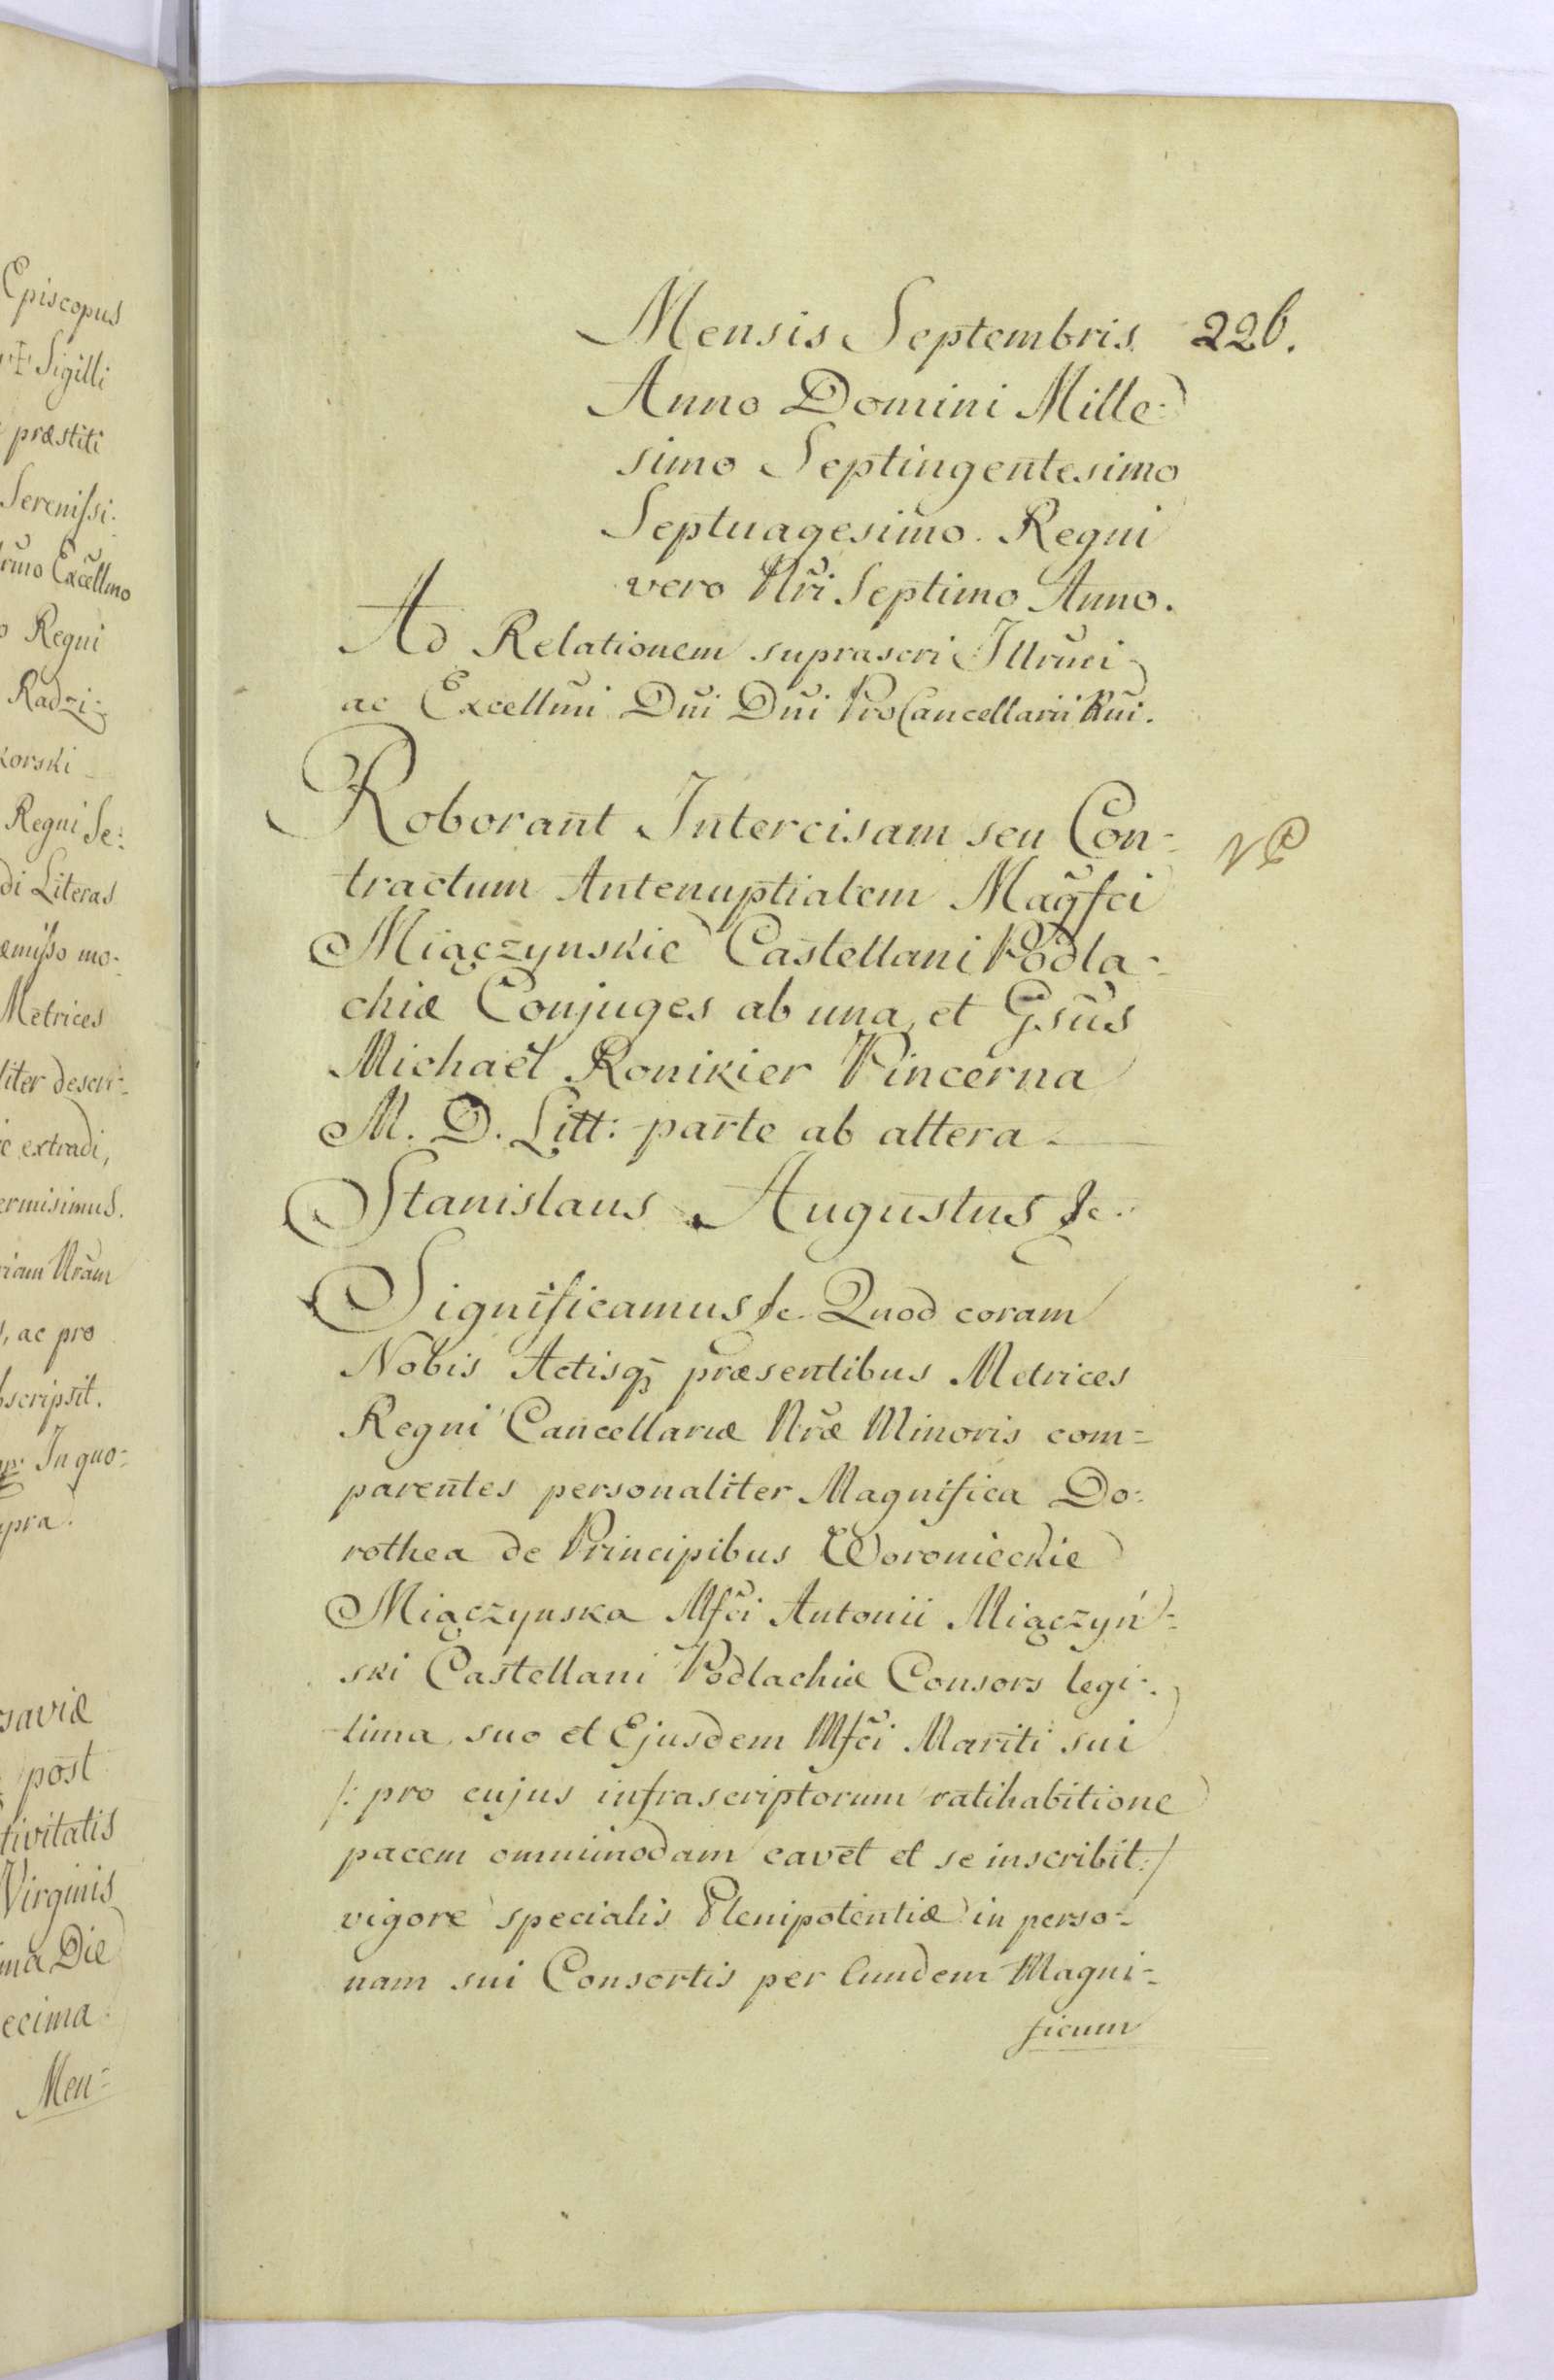 Episcopus
Sigilli
præstiti
Serenissi:
Excellmo
Regni
Radzi:
korski
Regni Se:
di Literas
æmisso mo:
Metrices
liter descri:
extradi,
ermisimus.
riam Nram
, ac pro
bscripsit.
In quo:
upra.
saviæ
post
tivitatis
Virginis
ma Die
ecima
Men:
Mensis Septembris 226.
Anno Domini Mille:
simo Septingentesimo
Septuagesimo. Regni
vero Nri Septimo Anno.
Ad Relationem suprascri Illrmi
ac Excellmi Dni Dni ProCancellarii Rni.
Roborant Intercisam seu Con:
tractum Antenuptialem Magfci
Miączynskie Castellani Podla:
chiæ Conjuges ab una, et Gsus
Michaël Ronikier Pincerna
M. D. Litt: parte ab altera
Stanislaus Augustus &c.
Significamus &c. Quod coram
Nobis Actisq; præsentibus Metrices
Regni Cancellariæ Nræ Minoris com=
parentes personaliter Magnifica Do:
rothea de Principibus Woronieckie
Miączynska Mfci Antonii Miączyń:
ski Castellani Podlachiæ Consors legi:
tima, suo et Ejusdem Mfci Mariti sui
/: pro cujus infrascriptorum ratihabitione
pacem omnimodam cavet et se inscribit :/
vigore specialis Plenipotentiæ in perso:
nam sui Consortis per Eundem Magni:
ficum